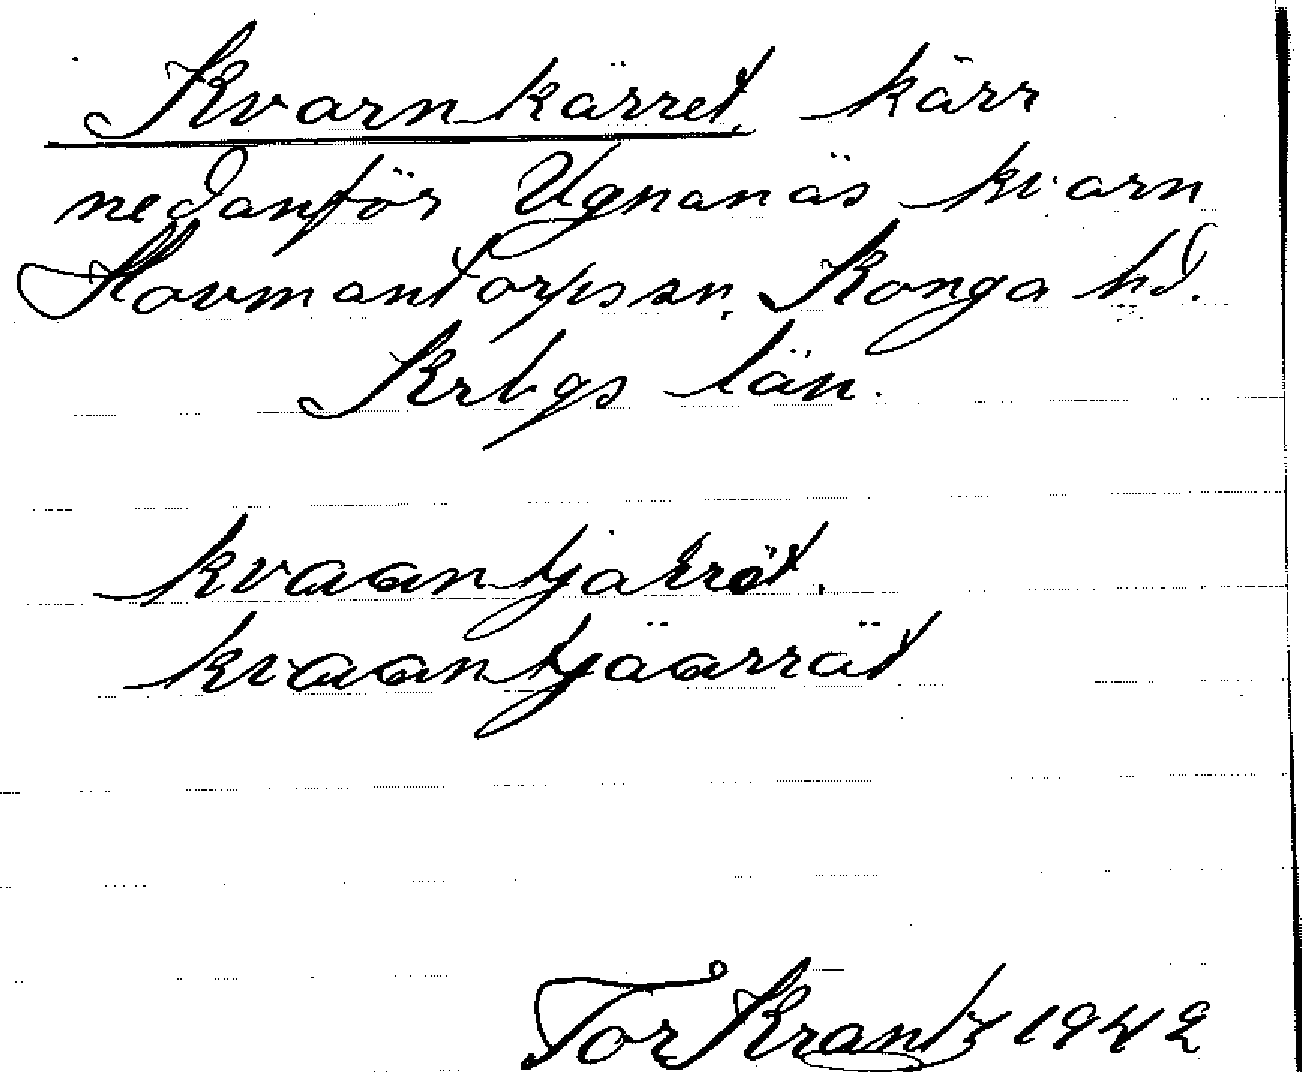 Kvarnkärret, kärr
nedanför Ugnanäs kvarn
Hovmantorps sn, Konga hd.
Krbgs län.
kvaantjärröt.
kvaantjäärrät
Tor Krantz 1942